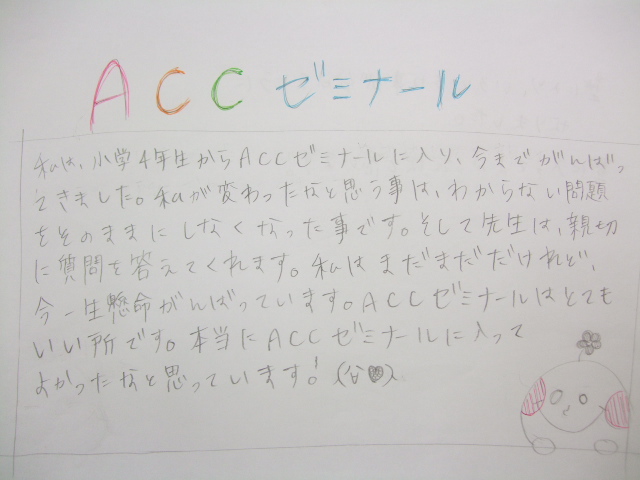 ACCゼミナール
私は、小学4年生からACCゼミナールに入り、今までがんばっ
てきました。私が変わったなと思う事は、わからない問題
をそのままにしなくなった事です。そして先生は、親切
に質問を答えてくれます。私はまだまだだけれど、
今一生懸命がんばっています。ACCゼミナールはとても
いい所です。本当にACCゼミナールに入って
よかったなと思っています!